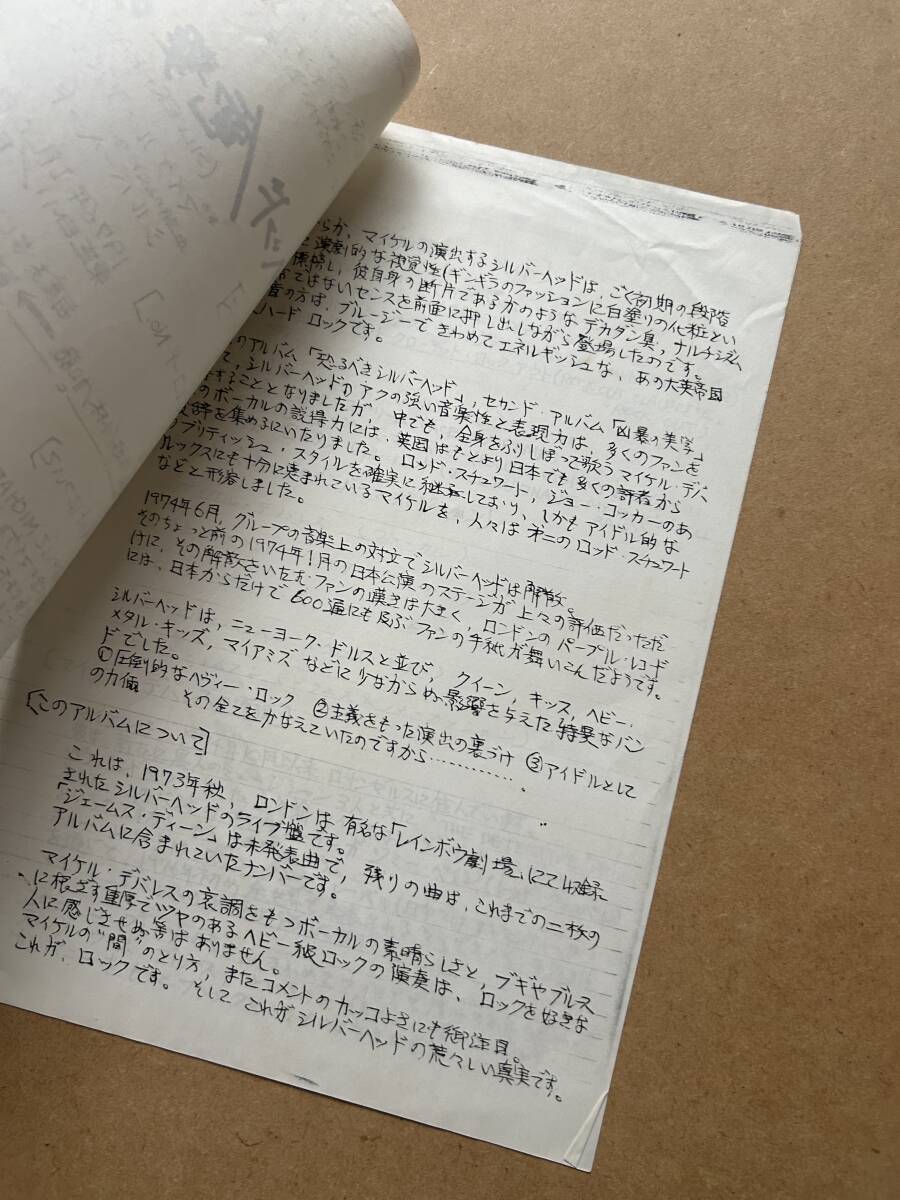 らか、マイケルの演出するシルバーヘッドは、ごく初期の段階
演劇的な視覚性(ギンギラのファッションに白塗りの化粧とい
標榜し、彼自身の断片であるかのようなデカダン臭、ナルチシズム
ではないセンスを前面に押し出しながら登場したのです。
音の方は、ブルージーできわめてエネルギッシュな、あの大英帝国
ハード ロックです。
のアルバム「恐るべきシルバーヘッド」, セカンド・アルバム「凶暴の美学」
て、シルバーヘッドの アクの強い音楽性と表現力は、多くのファンを
することとなりましたが、中でも、全身をふりしぼって歌うマイケル・デバ
のボーカルの説得力には、英国はもとより日本でも多くの評者から
辞を集めるにいたりました。ロッド・スチュワート, ジョー・コッカーのあ
のブリティッシュ・スタイルを確実に継承しており、しかもアイドル的な
ルックスにも十分に恵まれているマイケルを、人々は 才二のロッド・スチュワート
などと形容しました。
1974年6月、グループの音楽上の対立でシルバーヘッドは解散。
そのちょっと前の1974年1月の日本公演のステージが上々の評価だっただ
けに、その解散をいたむファンの嘆きは大きく、ロンドンの パープル・レコード
には、日本からだけで 600通にも及ぶファンの手紙が舞いこんだようです。
シルバーヘッドは、ニューヨーク・ドルスと並び, クイーン, キッス, ヘビー・
メタル・キッズ, マイアミズ などに少なからぬ影響を与えた特異なバン
ドでした。
①圧倒的なヘヴィー・ロック ②主義をもった演出の裏づけ ③アイドルとして
の力価 その全てをかなえていたのですから…………
[このアルバムについて]
これは、1973年秋, ロンドンは 有名な「レインボウ劇場」にて収録
されたシルバーヘッドのライブ盤です。
「ジェームス・ディーン」は未発表曲で、残りの曲は、これまでの二枚の
アルバムに含まれていたナンバーです。
マイケル・デバレスの哀調をもつボーカルの素晴らしさと、ブギやブルース
に根ざす重厚でツヤのあるヘビー級ロックの演奏は、ロックを好きな
人に感じさせぬ筈はありません。
マイケルの"間"のとり方, またコメントのカッコよさにも御注目。
これが、ロックです。そして これがシルバーヘッドの荒々しい真実です。